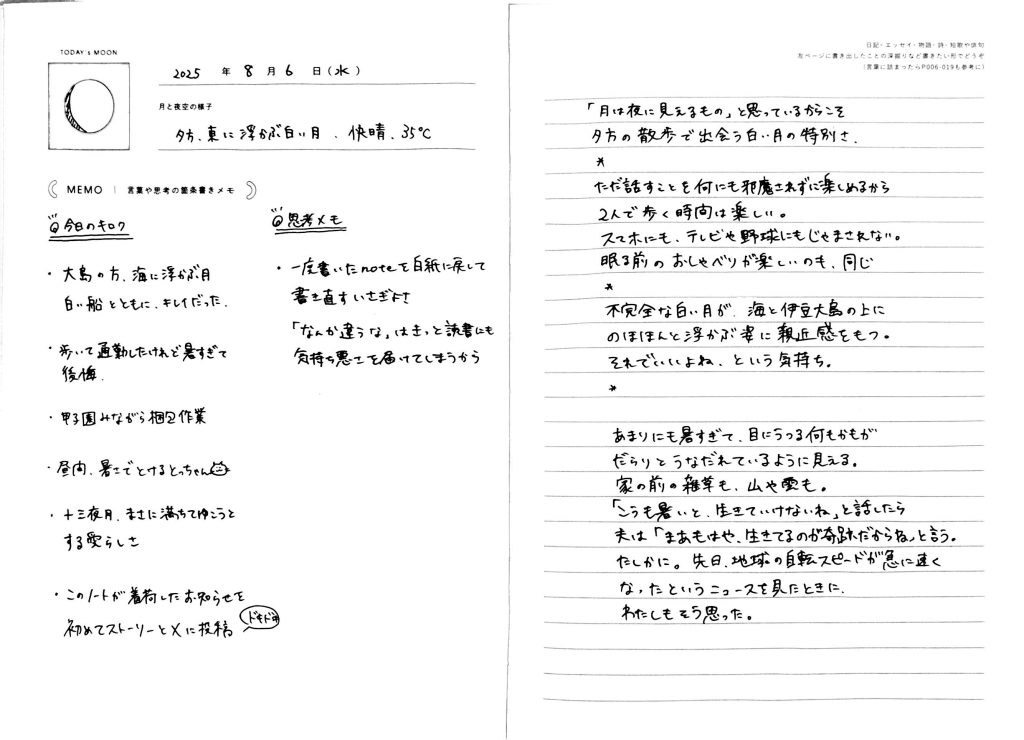 TODAY's MOON
2025 年 8 月 6 日(水)
月と夜空の様子
夕方、東に浮かぶ白い月、快晴、35℃
MEMO | 言葉や思考の箇条書きメモ
今日のキロク
・大島の方、海に浮かぶ月
白い船とともに、キレイだった.
・歩いて通勤したけれど暑すぎて
後悔.
・甲子園みながら梱包作業
・昼間、暑さでとけるとっちゃん
・十三夜月、まさに満ちてゆこうと
する愛らしさ
・このノートが着荷したお知らせを
初めてストーリーとXに投稿
ドキドキ
思考メモ
・一度書いたnoteを白紙に戻して
書き直すいさぎよさ
「なんか違うな」はきっと読書にも
気持ち悪さを届けてしまうから
日記・エッセイ・物語・詩・短歌や俳句
左ページに書き出したことの深掘りなど書きたい形でどうぞ
(言葉に詰まったらP006-019も参考に)
「月は夜に見えるもの」と思っているからこそ
夕方の散歩で出会う白い月の特別さ.
*
ただ話すことを何にも邪魔されずに楽しめるから
2人で歩く時間は楽しい。
スマホにも、テレビや野球にもじゃまされない。
眠る前のおしゃべりが楽しいのも、同じ
*
不完全な白い月が、海と伊豆大島の上に
のほほんと浮かぶ姿に親近感をもつ。
それでいいよね、という気持ち。
*
あまりにも暑すぎて、目にうつる何もかもが
だらりとうなだれているように見える。
家の前の雑草も、山や雲も。
「こうも暑いと、生きていけないね」と話したら
夫は「まあもはや、生きてるのが奇跡だからね」と言う。
たしかに。先日、地球の自転スピードが急に速く
なったというニュースを見たときに、
わたしもそう思った。